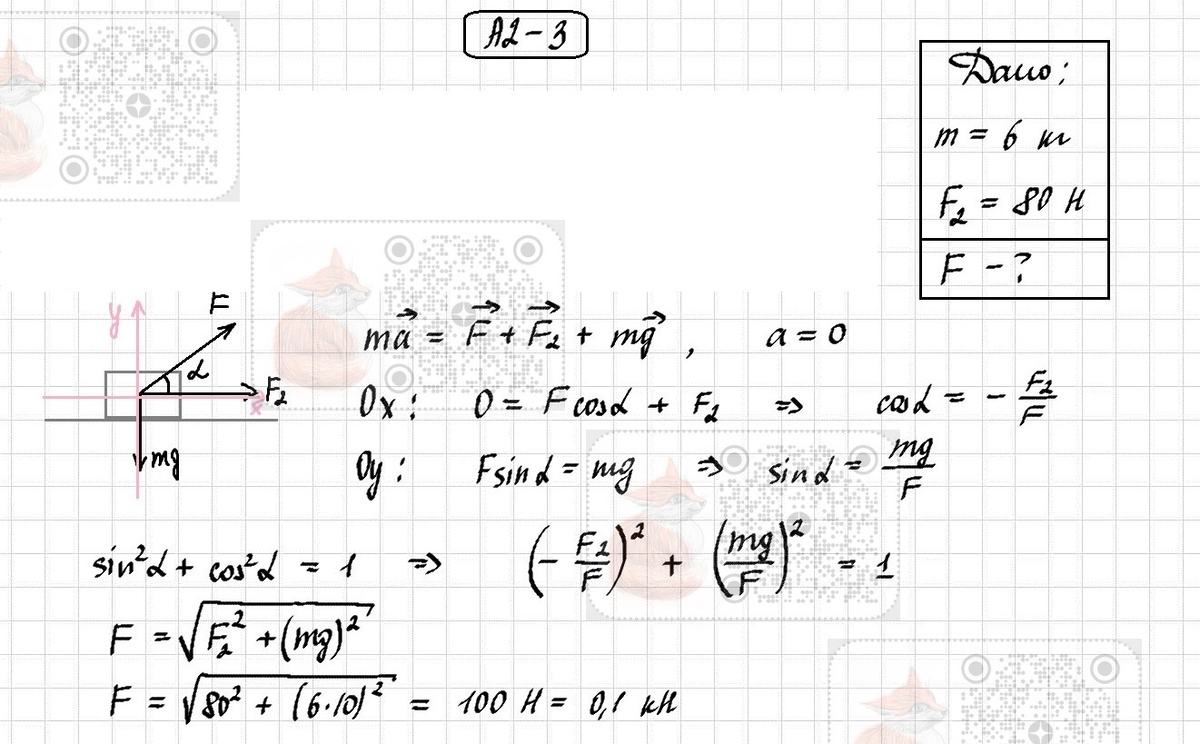 A2-3
Дано:
m = 6 кг
F₂ = 80 Н
F - ?
y
F
α
F₂
x
mg
ma⃗ = F⃗ + F⃗₂ + mg⃗ , a = 0
Ox : 0 = F cosα + F₂ => cosα = - F₂/F
Oy : F sinα = mg => sinα = mg/F
sin²α + cos²α = 1 => (- F₂/F)² + (mg/F)² = 1
F = √(F₂² + (mg)²)
F = √(80² + (6·10)²) = 100 Н = 0,1 кН